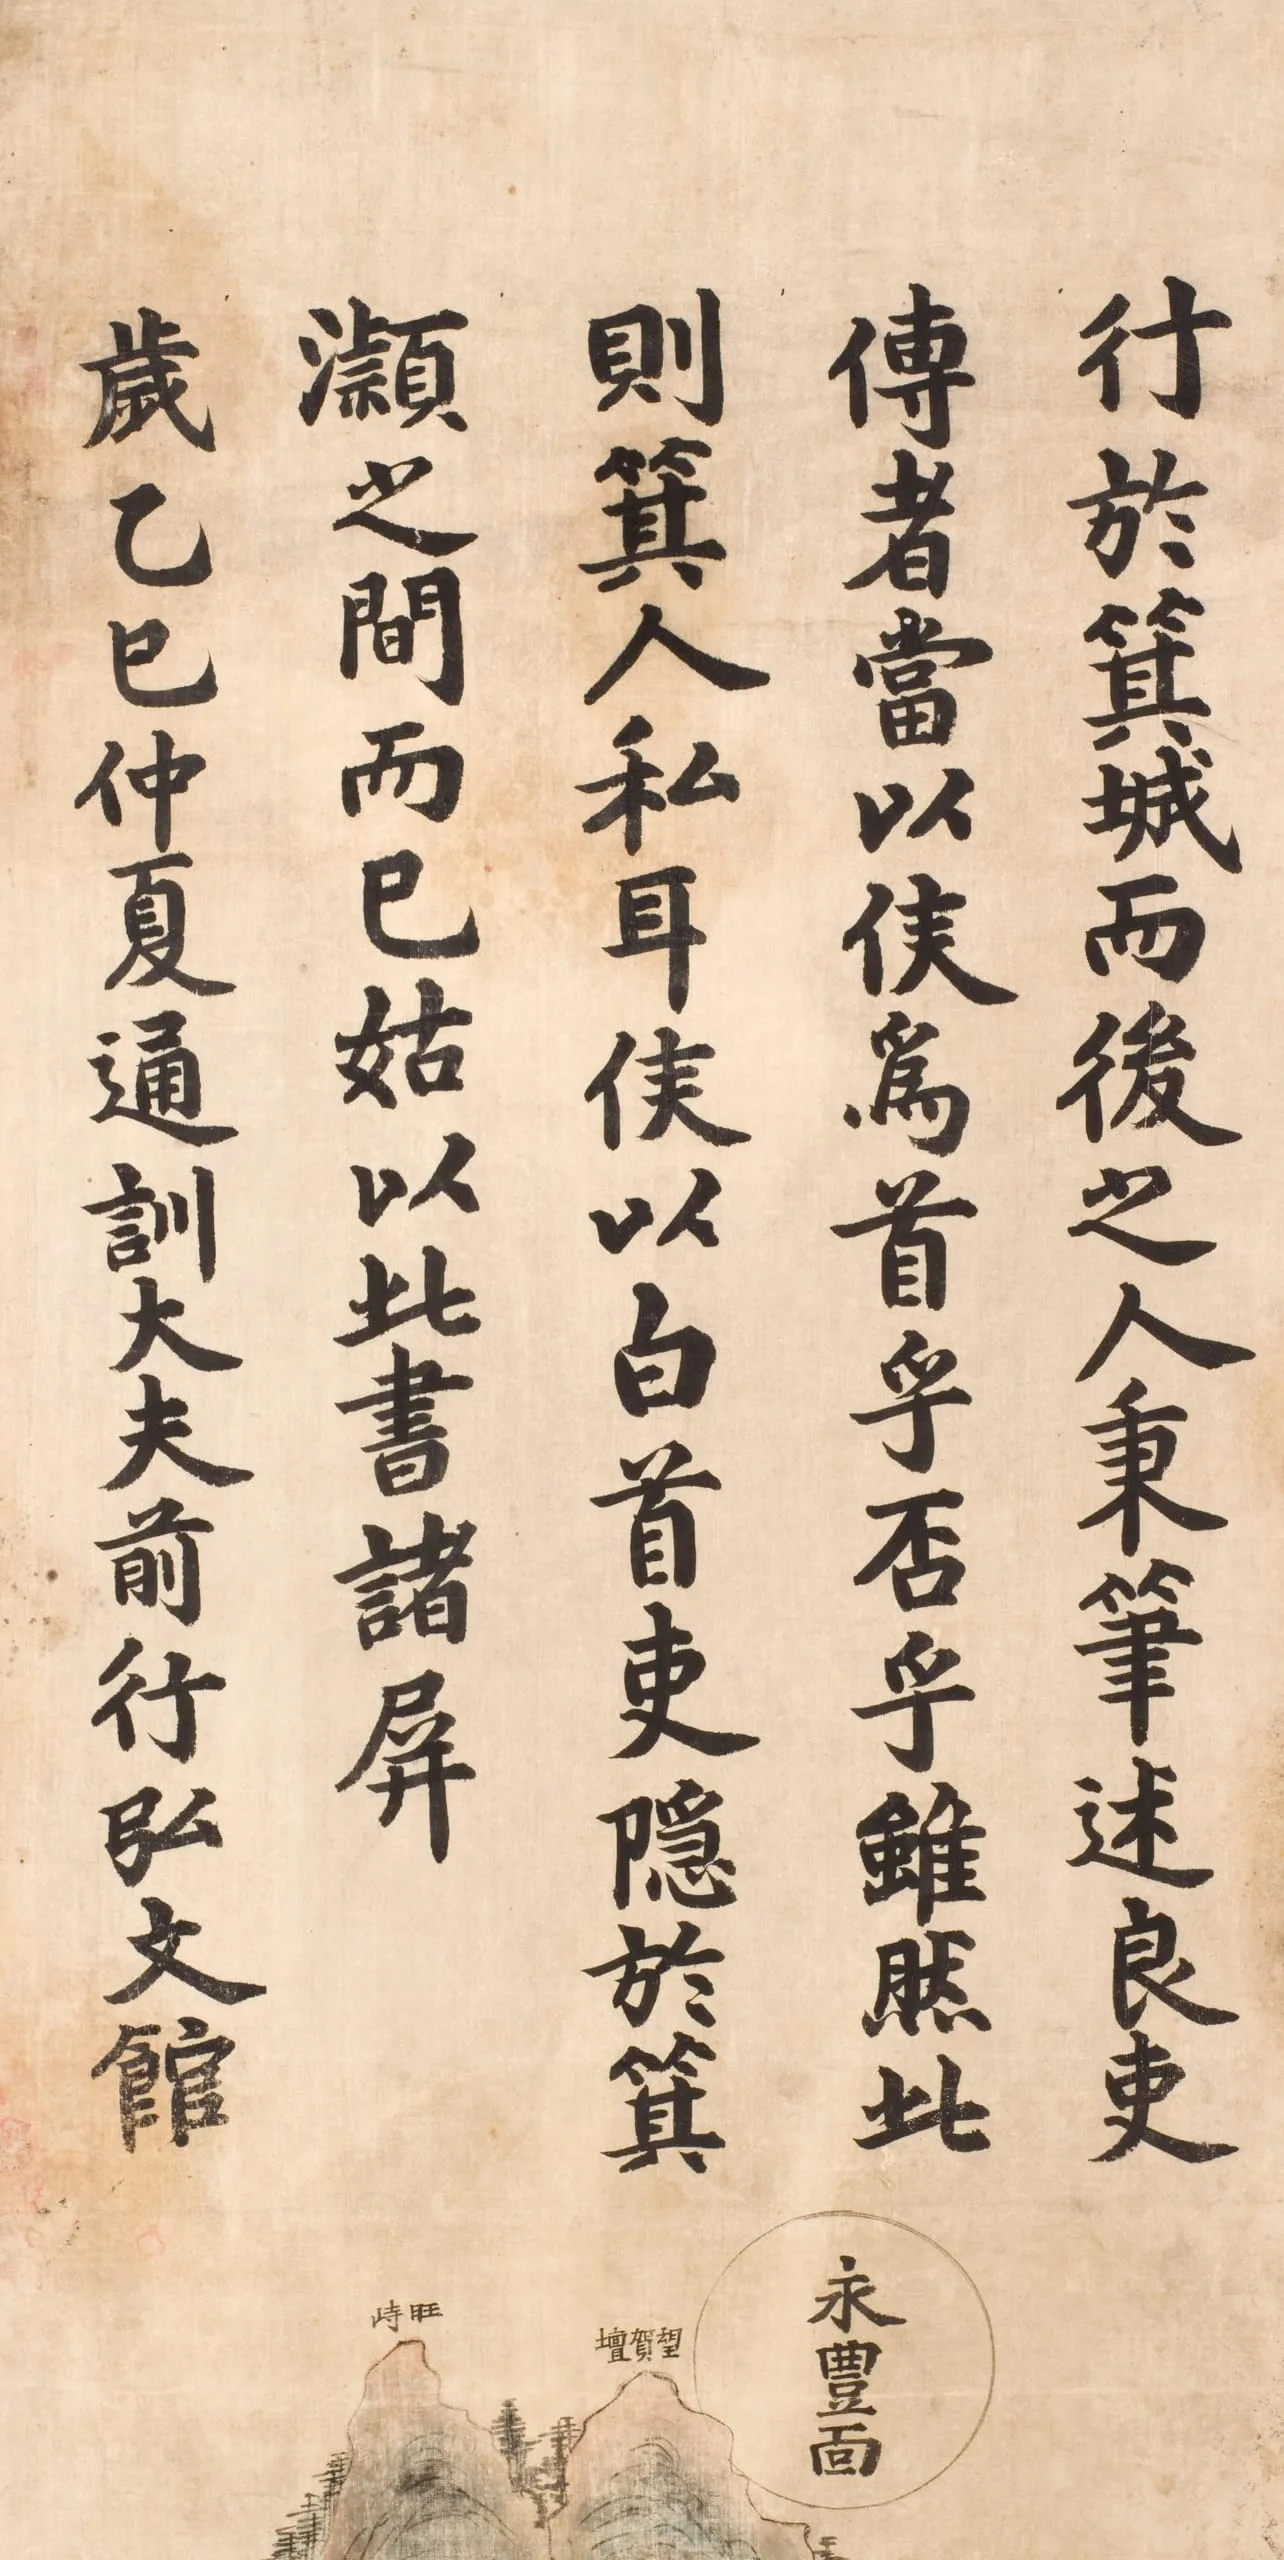 行於箕城而後之人秉筆述良吏
傳者當以侯爲首乎否乎雖然此
則箕人私耳侯以白首吏隱於箕
灝之間而已姑以此書諸屏
歲乙巳仲夏通訓大夫前行弘文館
永豐面
望賀壇
旺峙